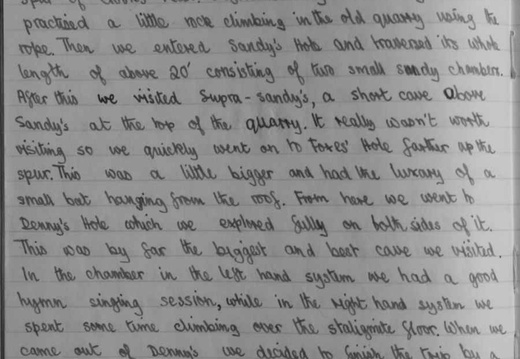 spur of
practised a little rock climbing in the old quarry using the
rope. Then we entered Sandy's Hole and traversed its whole
length of above 20' consisting of two small sandy chambers.
After this we visited Supra-Sandy's, a short cave above
Sandy's at the top of the quarry. It really wasn't worth
visiting so we quickly went on to Foxes' Hole farther up the
spur. This was a little bigger and had the luxury of a
small bat hanging from the roof. From here we went to
Denny's Hole which we explored fully on both sides of it.
This was by far the biggest and best cave we visited.
In the chamber in the left hand system we had a good
hymn singing session, while in the right hand system we
spent some time climbing over the staligmite floor. When we
came out of Denny's we decided to finish the trip by a